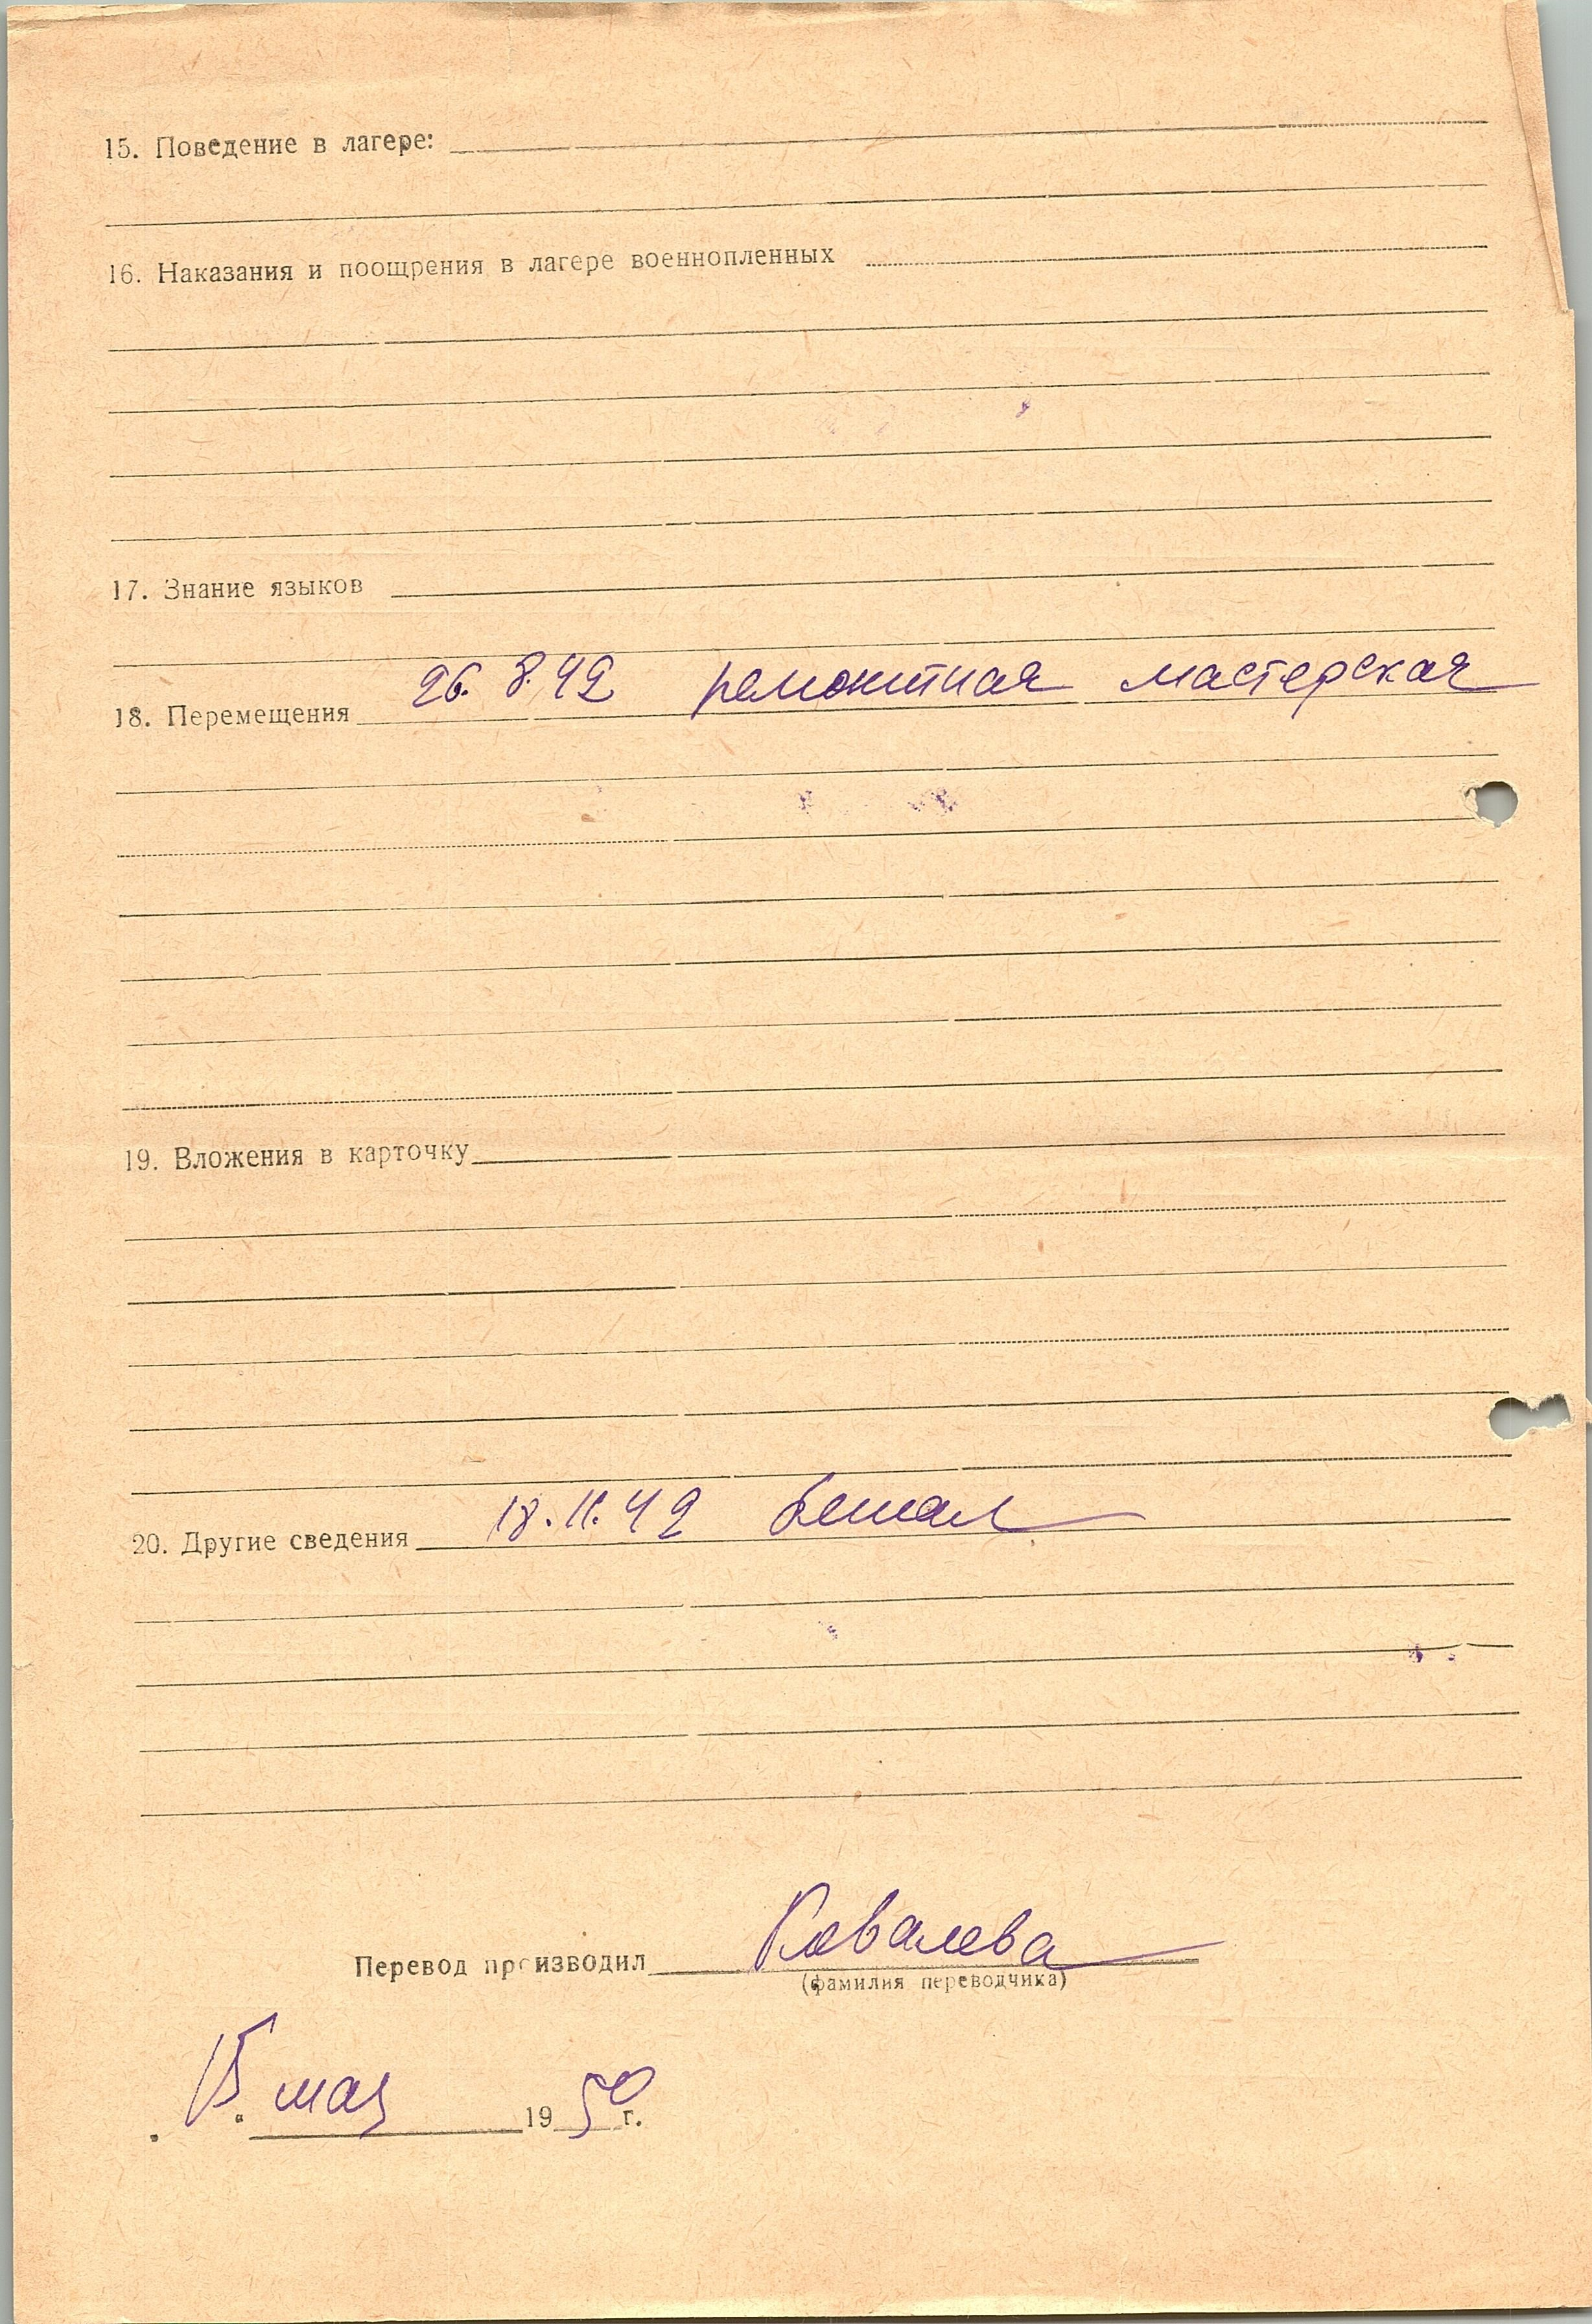 15. Поведение в лагере:
16. Наказания и поощрения в лагере военнопленных
17. Знание языков
18. Перемещения 26.8.42 ремонтная мастерская
19. Вложения в карточку
20. Другие сведения 18.11.42 бежал
Перевод производил Ковалева
(фамилия переводчика)
15 мая 1950 г.